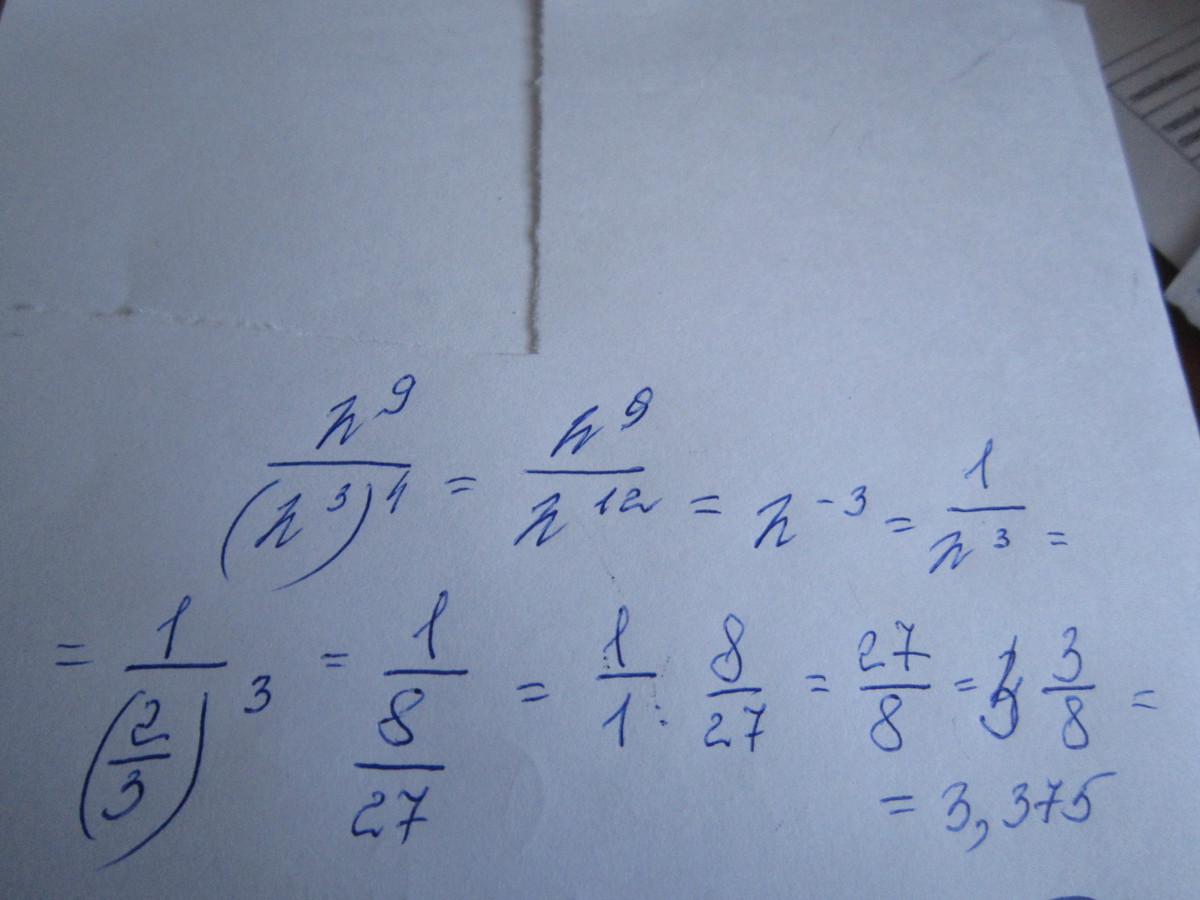 n^9/(n^3)^4 = n^9/n^12 = n^-3 = 1/n^3 =
= 1/(2/3)^3 = 1/(8/27) = 1/1 : 8/27 = 27/8 = 3 3/8 =
= 3,375